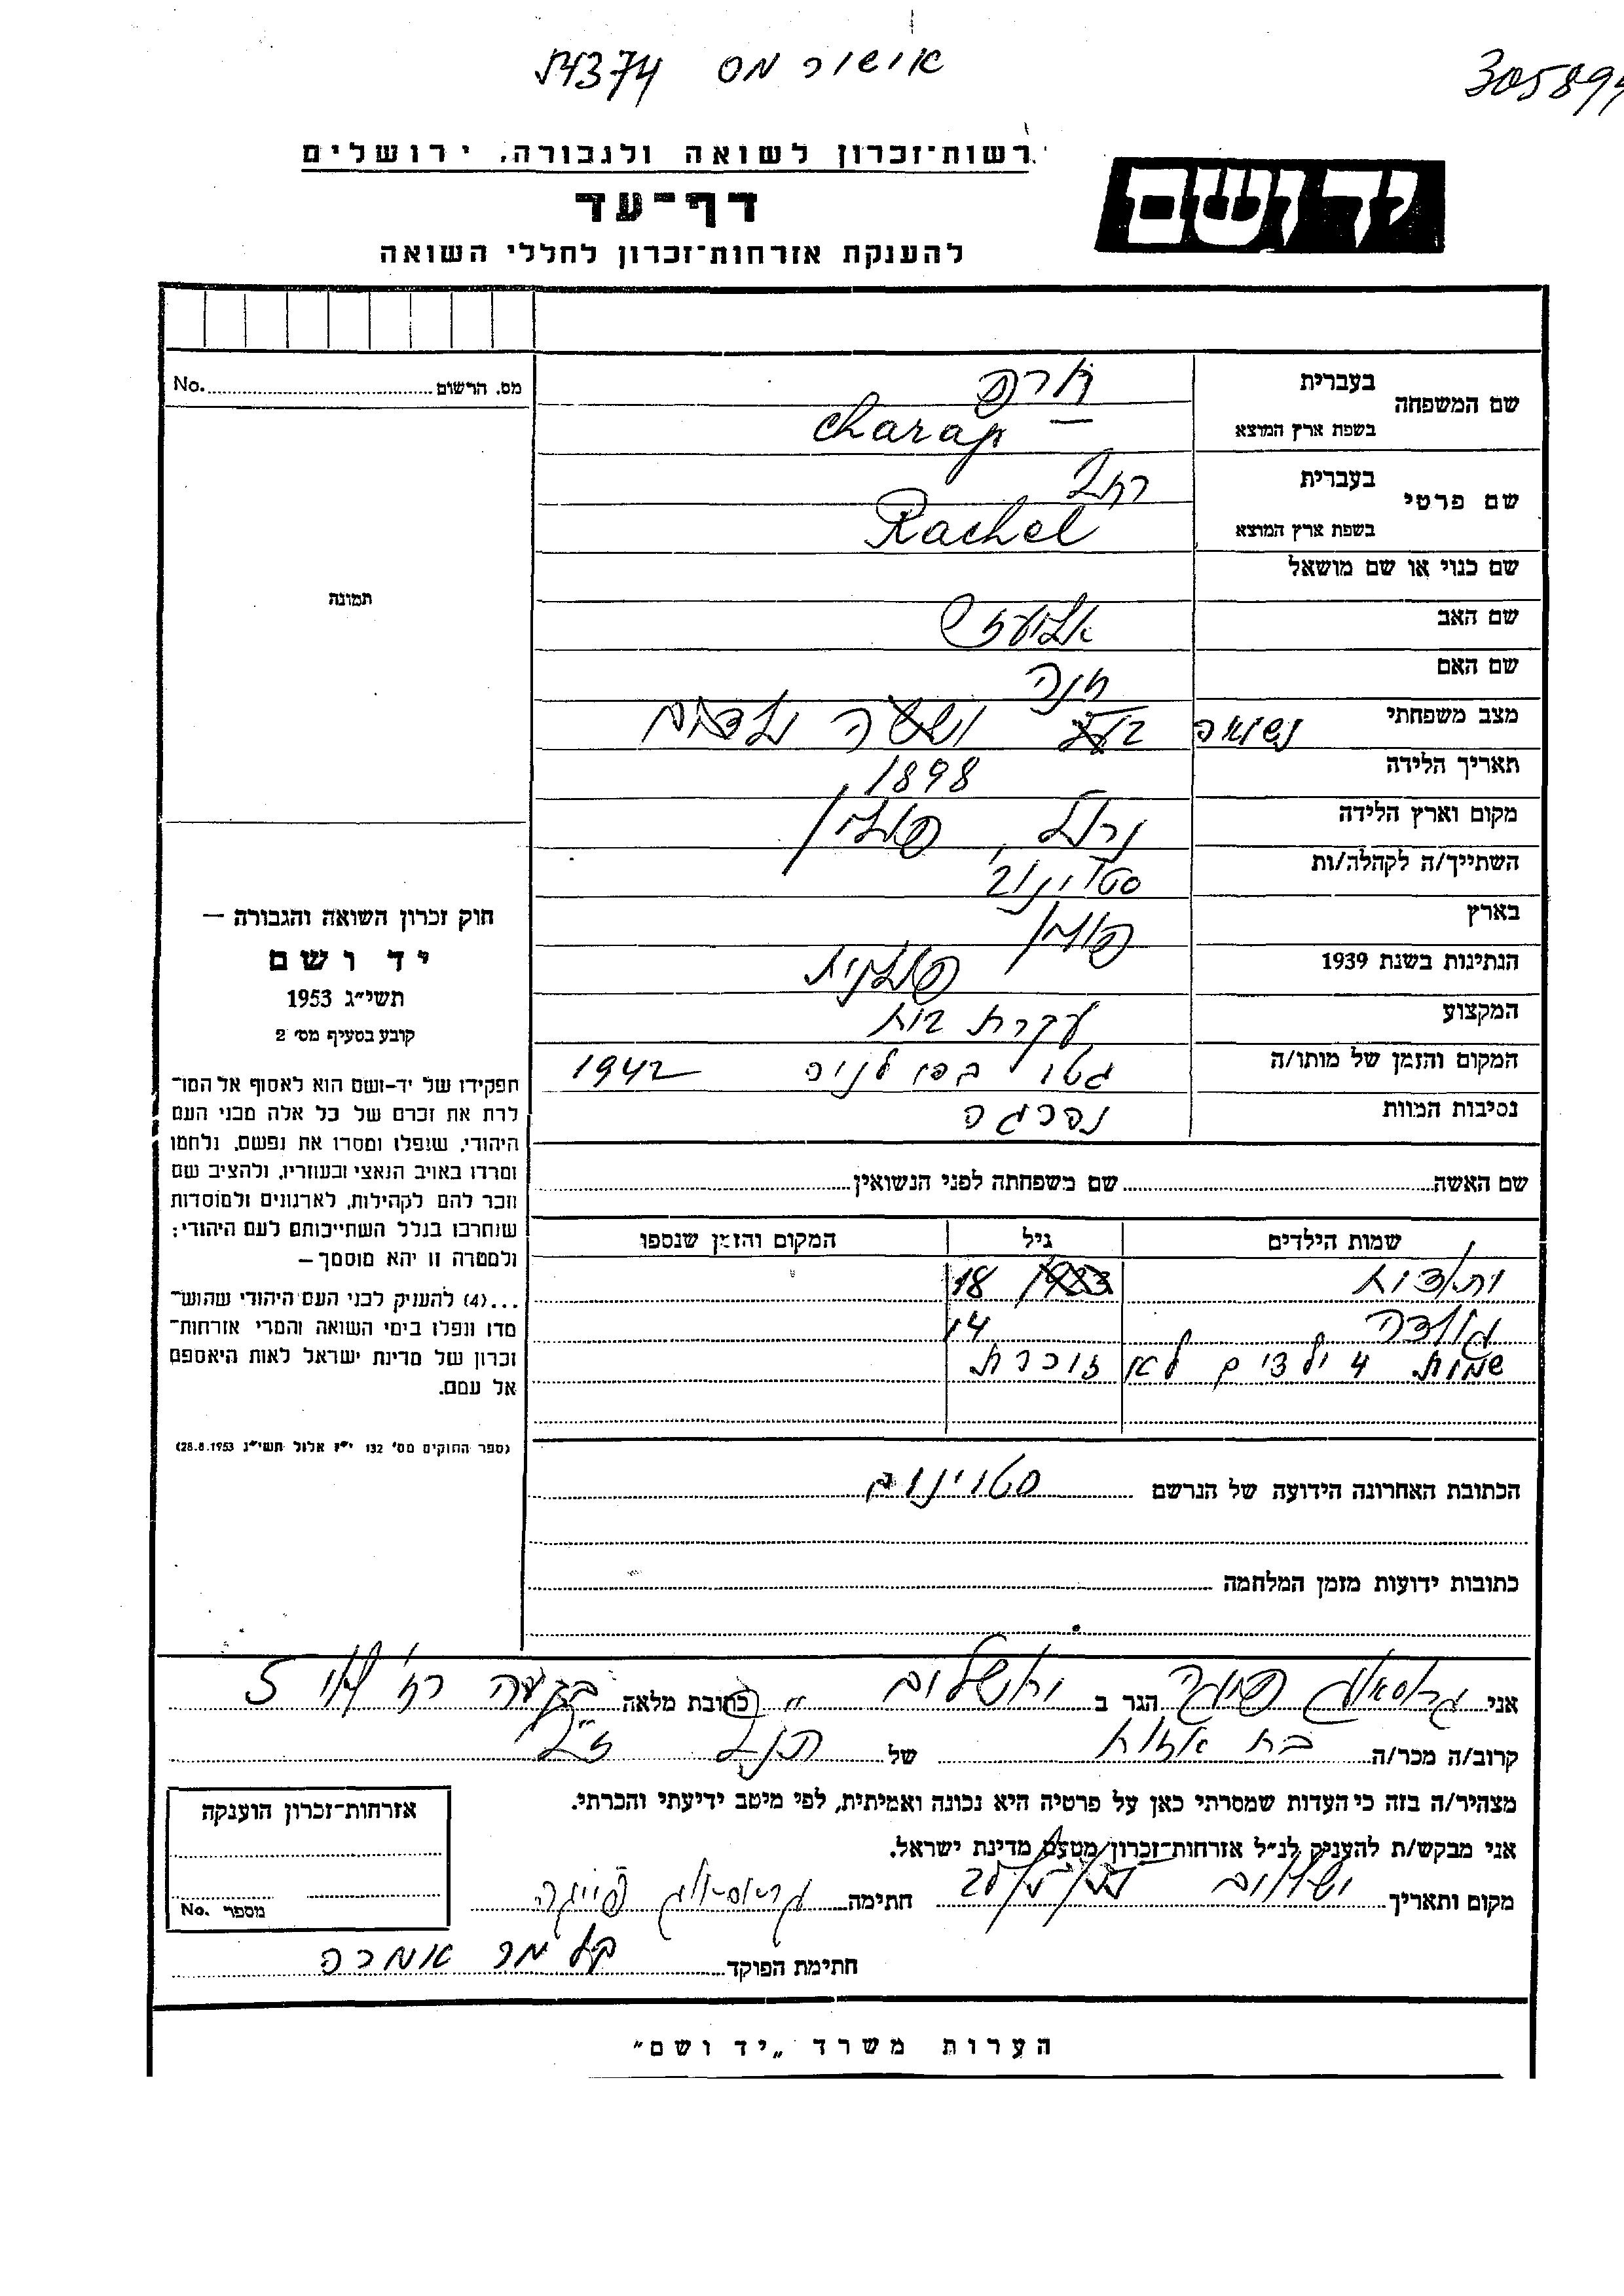 אישור מס 54374
305894
רשות־זכרון לשואה ולגבורה, ירושלים
יד ושם
דף־עד
להענקת אזרחות־זכרון לחללי השואה
מס. הרשום No.
שם המשפחה בעברית חרפ
בשפת ארץ המוצא Charap
שם פרטי בעברית רחל
בשפת ארץ המוצא Rachel
שם כנוי או שם מושאל
תמונה
שם האב
שם האם חנה
מצב משפחתי נשואה
תאריך הלידה 1898
מקום וארץ הלידה פולין
השתייך/ה לקהלה/ות
בארץ פולין
הנתינות בשנת 1939 פולנית
המקצוע עקרת בית
המקום והזמן של מותו/ה גטו 1942
נסיבות המוות נהרגה
חוק זכרון השואה והגבורה —
יד ושם
תשי״ג 1953
קובע בסעיף מס׳ 2
תפקידו של יד-ושם הוא לאסוף אל המו־
לדת את זכרם של כל אלה מבני העם
היהודי, שנפלו ומסרו את נפשם, נלחמו
ומרדו באויב הנאצי ובעוזריו, ולהציב שם
וזכר להם לקהילות, לארגונים ולמוסדות
שנחרבו בגלל השתייכותם לעם היהודי;
ולמטרה זו יהא מוסמך—
...(4) להעניק לבני העם היהודי שהוש־
מדו ונפלו בימי השואה והמרי אזרחות־
זכרון של מדינת ישראל לאות היאספם
אל עמם.
(ספר החוקים מס׳ 132 י״ז אלול תשי״ג 28.8.1953)
שם האשה שם משפחתה לפני הנשואין
שמות הילדים גיל המקום והזמן שנספו
18
14
שמות 4 ילדים לא זוכרת
הכתובת האחרונה הידועה של הנרשם
כתובות ידועות מזמן המלחמה
אני הגר ב ירושלים כתובת מלאה 5
קרוב/ה מכר/ה בת אחות של הנ״ל
מצהיר/ה בזה כי העדות שמסרתי כאן על פרטיה היא נכונה ואמיתית, לפי מיטב ידיעתי והכרתי.
אני מבקש/ת להעניק לנ״ל אזרחות־זכרון מטעם מדינת ישראל.
מקום ותאריך חתימה
חתימת הפוקד
אזרחות־זכרון הוענקה
מספר No.
הערות משרד „יד ושם״